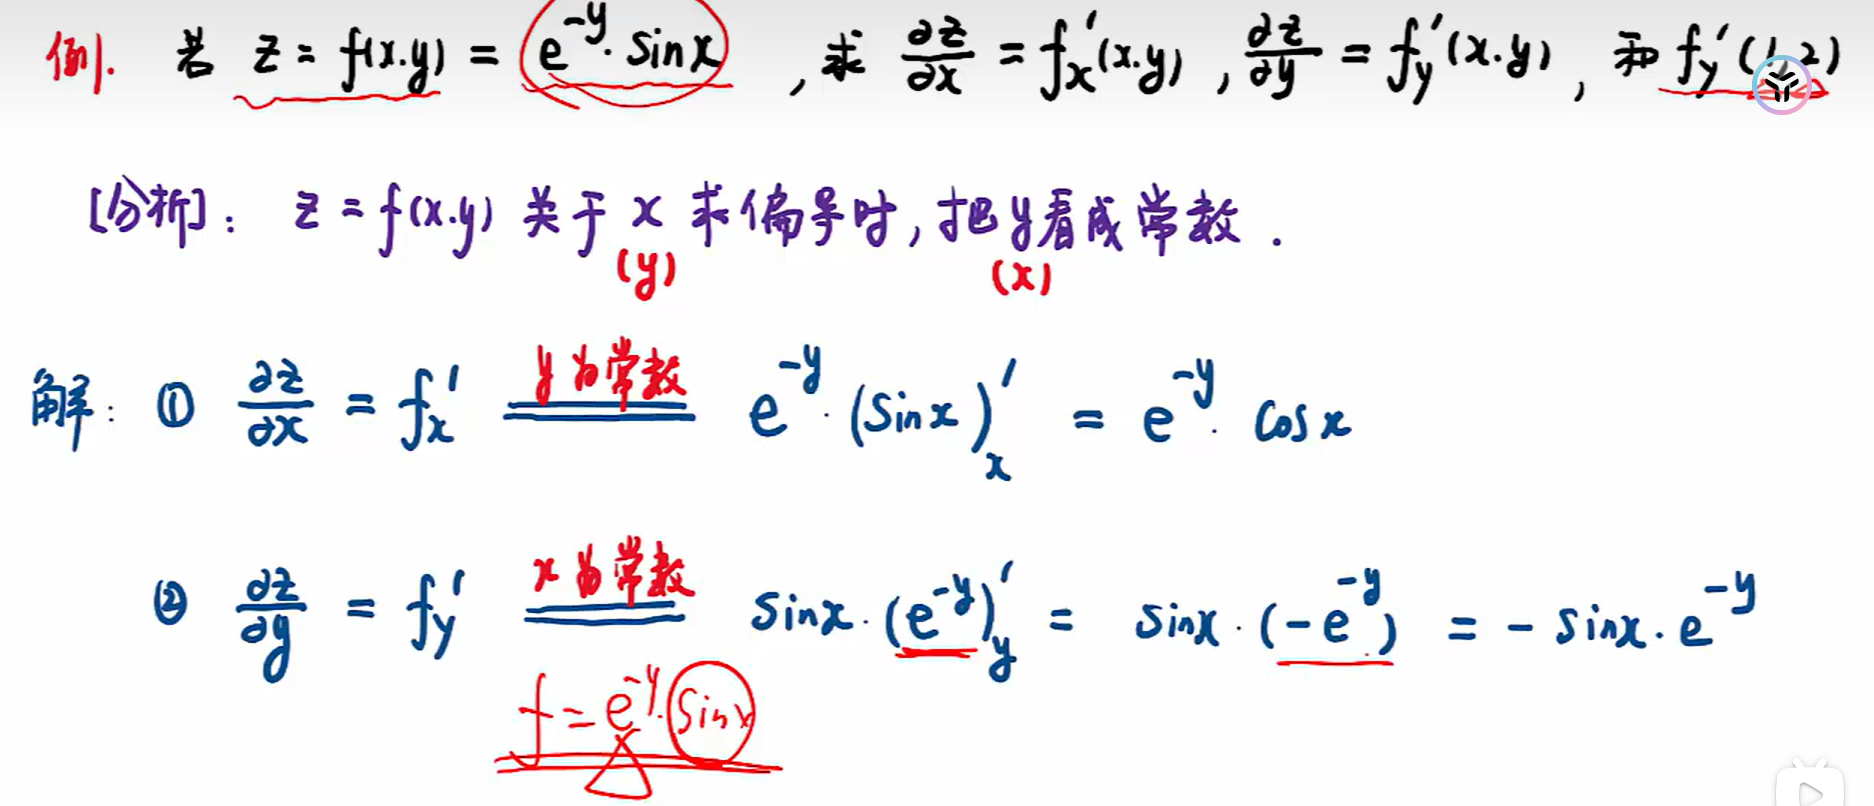 例1. 若 z = f(x.y) = e^{-y}·sinx , 求 ∂z/∂x = f_x'(x.y) , ∂z/∂y = f_y'(x.y) , 和 f_y'(1,2)
[分析]: z = f(x.y) 关于 x 求偏导时, 把 y 看成常数.
(y) (x)
解: ① ∂z/∂x = f_x' y为常数 e^{-y}·(sinx)'_x = e^{-y}·cosx
② ∂z/∂y = f_y' x为常数 sinx·(e^{-y})'_y = sinx·(-e^{-y}) = -sinx·e^{-y}
f = e^{-y}·sinx